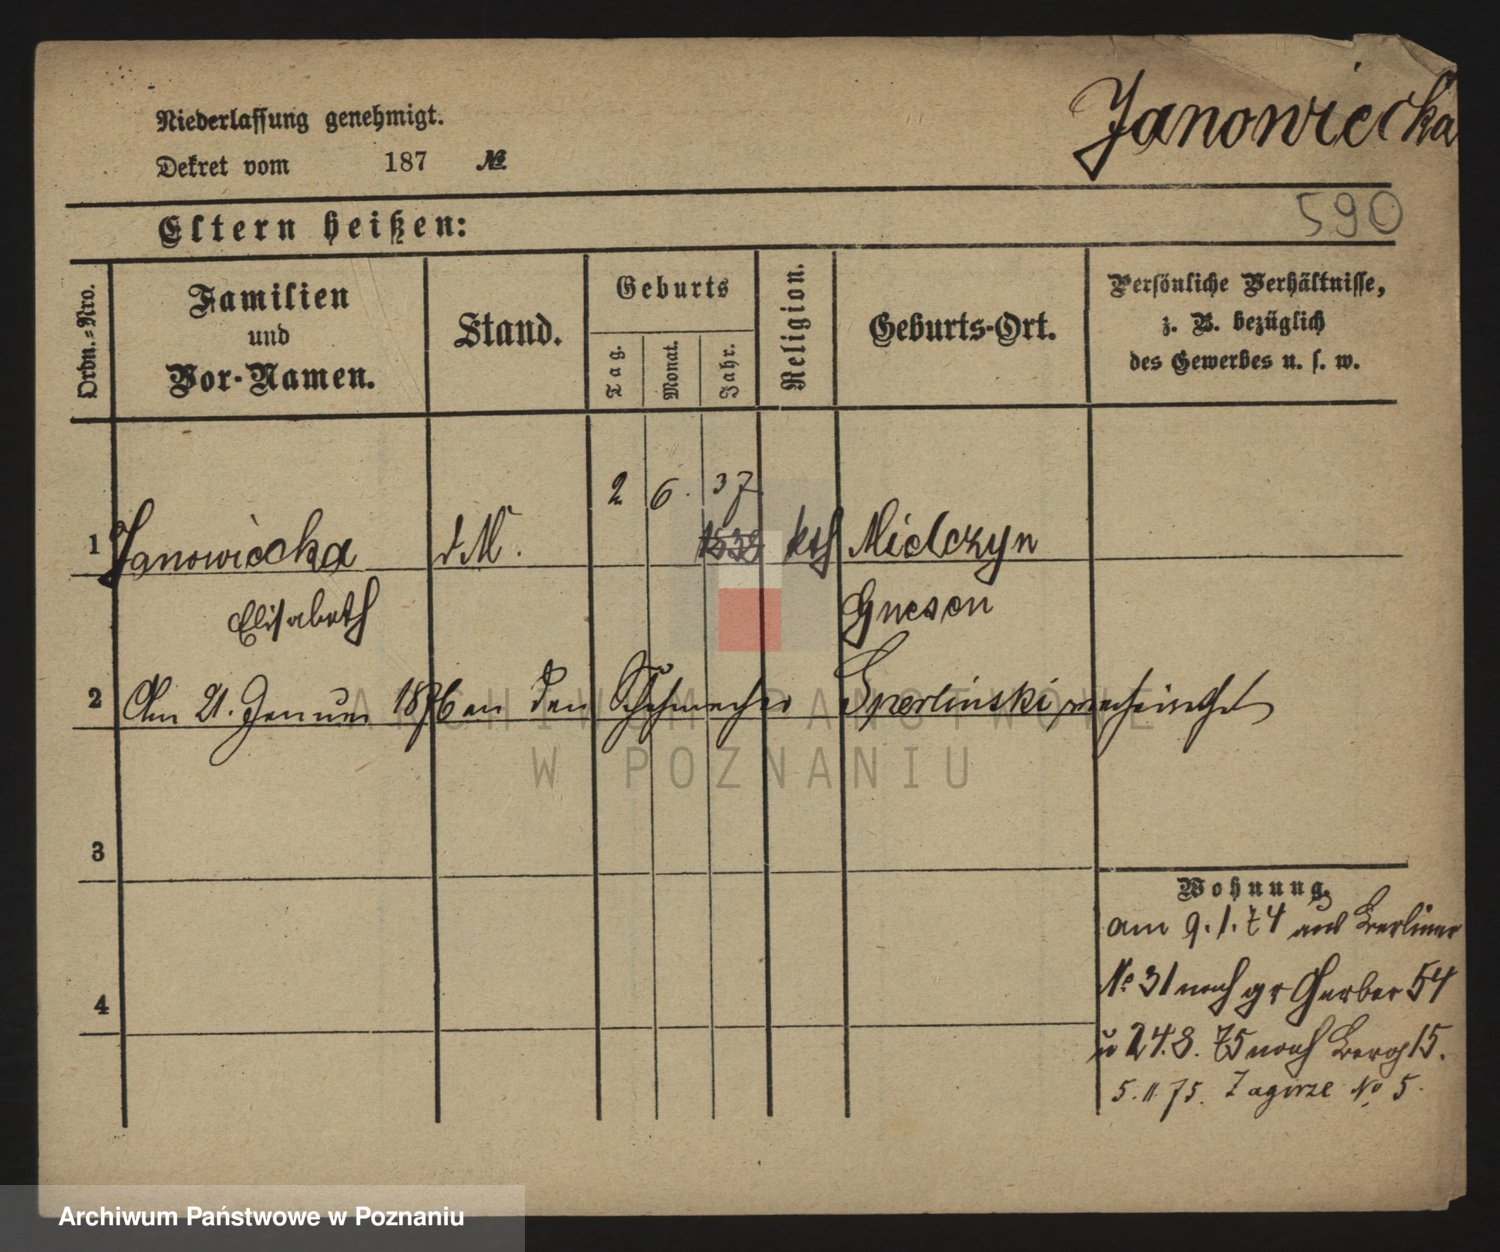 Janowiecka
Niederlassung genehmigt.
Dekret vom 187 №
590
Eltern heißen:
Ordn.=Nro.
Familien
und
Vor-Namen.
Stand.
Geburts
Tag.
Monat.
Jahr.
Religion.
Geburts-Ort.
Persönliche Verhältnisse,
z. B. bezüglich
des Gewerbes u. s. w.
2 6. 37
1 Janowiecka d M. kth Mielczyn
Elisabeth Gnesen
2 Am 21. Januar 1876 an den Schuhmacher Sperlinski verheirathet
ARCHIWUM PAŃSTWOWE
W POZNANIU
3
4
Wohnung.
am 9.1.74 aus Berliner
No 31 nach gr Gerber 54
u 24.8.75 nach Berg 15.
5.11.75. Zagorze No 5.
Archiwum Państwowe w Poznaniu